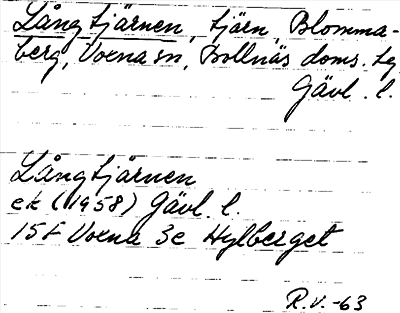 Långtjärnen, tjärn, Blomma-
berg, Voxna sn, Bollnäs doms. tg,
Gävl. l.
Långtjärnen
ek (1958) Gävl. l.
15F Voxna 3c Hylberget
R.V. -63